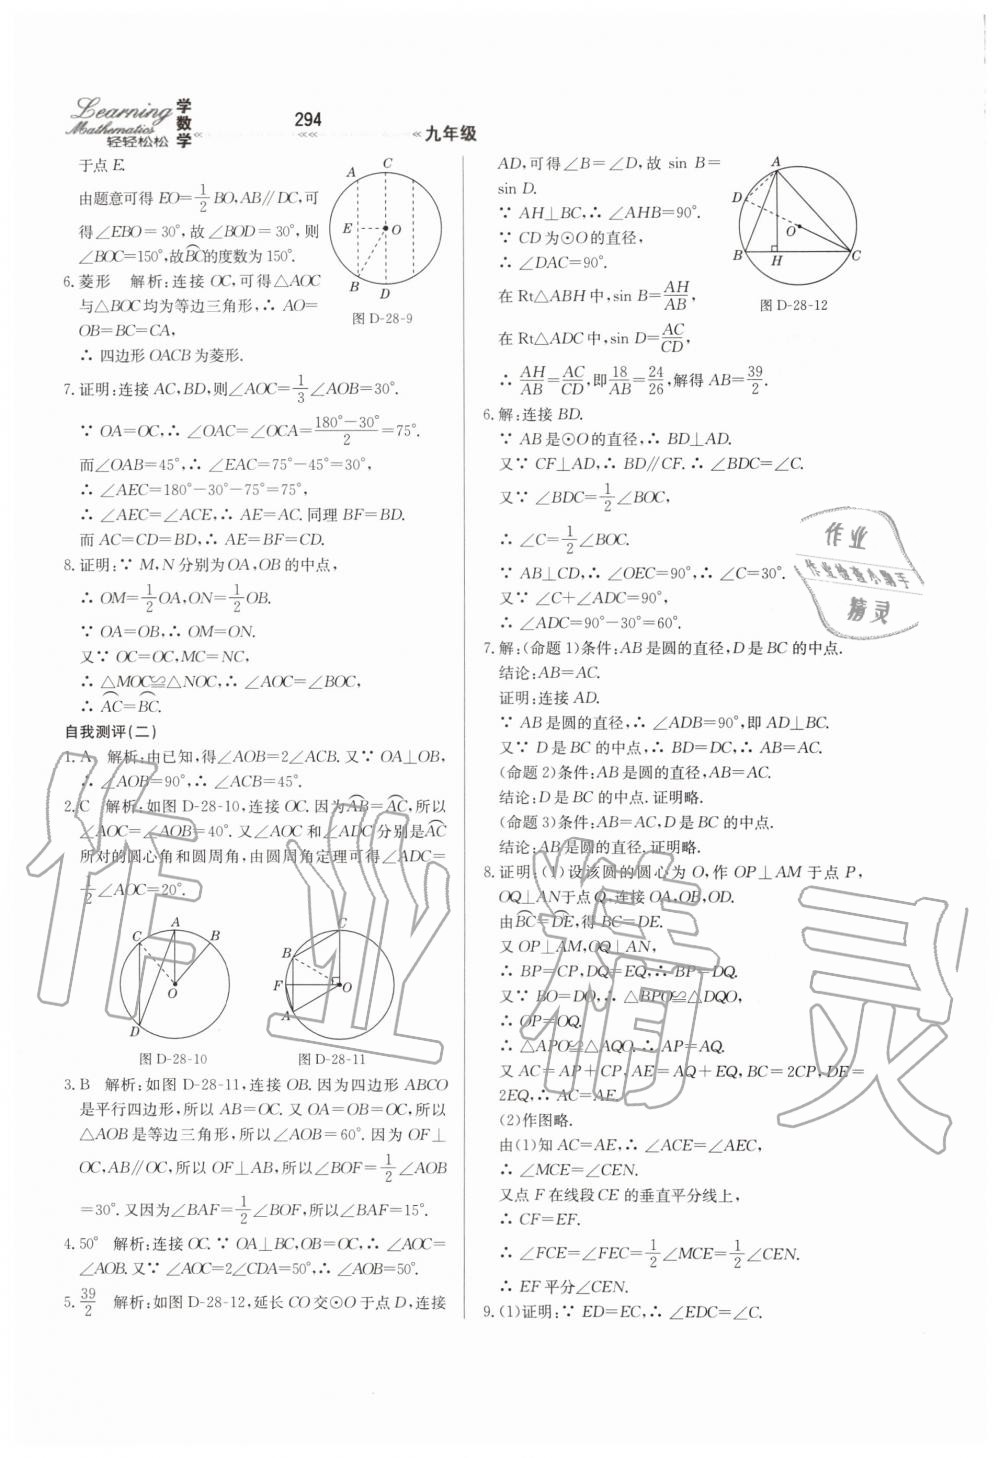 Learning
Mathematics
轻轻松松
学数学
294
九年级
于点 E.
由题意可得 EO=1/2 BO,AB∥DC,可
得∠EBO=30°,故∠BOD=30°,则
∠BOC=150°,故BC⌒的度数为 150°.
6. 菱形 解析:连接 OC,可得△AOC
与△BOC 均为等边三角形,∴ AO=
OB=BC=CA,
∴ 四边形 OACB 为菱形.
A
C
E
O
B
D
图 D-28-9
7. 证明:连接 AC,BD,则∠AOC=1/3∠AOB=30°.
∵ OA=OC,∴ ∠OAC=∠OCA=(180°-30°)/2=75°.
而∠OAB=45°,∴ ∠EAC=75°-45°=30°,
∴ ∠AEC=180°-30°-75°=75°,
∴ ∠AEC=∠ACE,∴ AE=AC. 同理 BF=BD.
而 AC=CD=BD,∴ AE=BF=CD.
8. 证明:∵ M,N 分别为 OA,OB 的中点,
∴ OM=1/2 OA,ON=1/2 OB.
∵ OA=OB,∴ OM=ON.
又∵ OC=OC,MC=NC,
∴ △MOC≌△NOC,∴ ∠AOC=∠BOC,
∴ AC⌒=BC⌒.
自我测评(二)
1. A 解析:由已知,得∠AOB=2∠ACB. 又∵ OA⊥OB,
∴ ∠AOB=90°,∴ ∠ACB=45°.
2. C 解析:如图 D-28-10,连接 OC. 因为AB⌒=AC⌒,所以
∠AOC=∠AOB=40°. 又∠AOC 和∠ADC 分别是AC⌒
所对的圆心角和圆周角,由圆周角定理可得∠ADC=
1/2∠AOC=20°.
C
A
B
O
D
图 D-28-10
C
B
F
O
A
图 D-28-11
3. B 解析:如图 D-28-11,连接 OB. 因为四边形 ABCO
是平行四边形,所以 AB=OC. 又 OA=OB=OC,所以
△AOB 是等边三角形,所以∠AOB=60°. 因为 OF⊥
OC,AB∥OC,所以 OF⊥AB,所以∠BOF=1/2∠AOB
=30°. 又因为∠BAF=1/2∠BOF,所以∠BAF=15°.
4. 50° 解析:连接 OC. ∵ OA⊥BC,OB=OC,∴ ∠AOC=
∠AOB. 又∵ ∠AOC=2∠CDA=50°,∴ ∠AOB=50°.
5. 39/2 解析:如图 D-28-12,延长 CO 交⊙O 于点 D,连接
AD,可得∠B=∠D,故 sin B=
sin D.
∵ AH⊥BC,∴ ∠AHB=90°.
∵ CD为⊙O的直径,
∴ ∠DAC=90°.
在 Rt△ABH 中,sin B=AH/AB,
在 Rt△ADC 中,sin D=AC/CD,
A
D
O
B
H
C
图 D-28-12
∴ AH/AB=AC/CD,即18/AB=24/26,解得 AB=39/2.
6. 解:连接 BD.
∵ AB是⊙O的直径,∴ BD⊥AD.
又∵ CF⊥AD,∴ BD∥CF. ∴ ∠BDC=∠C.
又∵ ∠BDC=1/2∠BOC,
∴ ∠C=1/2∠BOC.
∵ AB⊥CD,∴ ∠OEC=90°,∴ ∠C=30°.
又∵ ∠C+∠ADC=90°,
∴ ∠ADC=90°-30°=60°.
7. 解:(命题 1)条件:AB是圆的直径,D是 BC 的中点.
结论:AB=AC.
证明:连接 AD.
∵ AB是圆的直径,∴ ∠ADB=90°,即 AD⊥BC.
又∵ D 是 BC 的中点,∴ BD=DC,∴ AB=AC.
(命题 2)条件:AB 是圆的直径,AB=AC.
结论:D 是 BC 的中点. 证明略.
(命题 3)条件:AB=AC,D 是 BC 的中点.
结论:AB 是圆的直径. 证明略.
8. 证明:(1)设该圆的圆心为 O,作 OP⊥AM 于点 P,
OQ⊥AN于点 Q,连接 OA,OB,OD.
由BC⌒=DE⌒,得 BC=DE.
又 OP⊥AM,OQ⊥AN,
∴ BP=CP,DQ=EQ,∴ BP=DQ.
又∵ BO=DO,∴ △BPO≌△DQO,
∴ OP=OQ.
∴ △APO≌△AQO,∴ AP=AQ.
又 AC=AP+CP,AE=AQ+EQ,BC=2CP,DE=
2EQ,∴ AC=AE.
(2)作图略.
由(1)知 AC=AE,∴ ∠ACE=∠AEC,
∴ ∠MCE=∠CEN.
又点 F 在线段 CE 的垂直平分线上,
∴ CF=EF.
∴ ∠FCE=∠FEC=1/2∠MCE=1/2∠CEN.
∴ EF平分∠CEN.
9. (1)证明:∵ ED=EC,∴ ∠EDC=∠C.
作业
作业检查小帮手
精灵
作业精灵